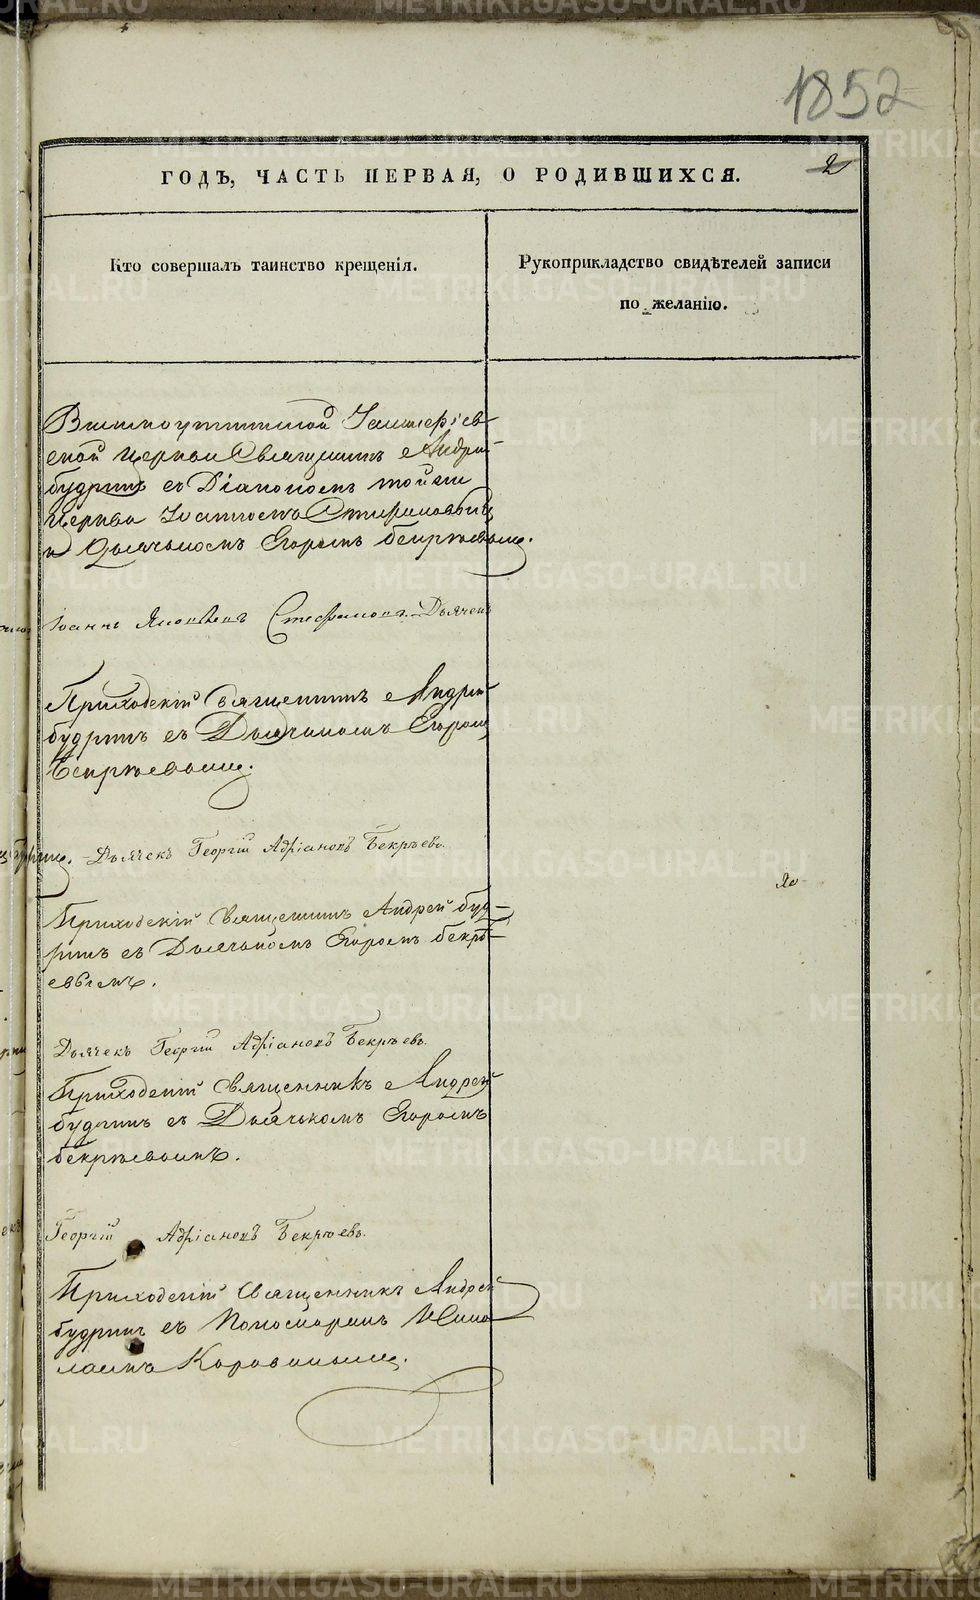 1852
2
ГОДЪ, ЧАСТЬ ПЕРВАЯ, О РОДИВШИХСЯ.
Кто совершалъ таинство крещенія.
Рукоприкладство свидѣтелей записи
по желанію.
ской церкви Священникъ Андрей
Будринъ съ Діакономъ тойже
церкви Іоанномъ Стефановымъ
и Дьячкомъ Егоромъ Бекрѣевымъ.
Іоаннъ Яковлевъ Стефановъ. Дьячекъ
Приходскій Священникъ Андрей
Будринъ съ Дьячкомъ Егоромъ
Бекрѣевымъ.
Дьячекъ Георгій Адріановъ Бекрѣевъ.
Приходскій Священникъ Андрей Буд-
ринъ съ Дьячкомъ Егоромъ Бекрѣ-
евымъ.
Дьячекъ Георгій Адріановъ Бекрѣевъ.
Приходскій Священникъ Андрей
Будринъ съ Дьячькомъ Егоромъ
Бекрѣевымъ.
Георгій Адріановъ Бекрѣевъ.
Приходскій Священникъ Андрей
Будринъ съ Пономаремъ Нико
лаемъ
METRIKI.GASO-URAL.RU